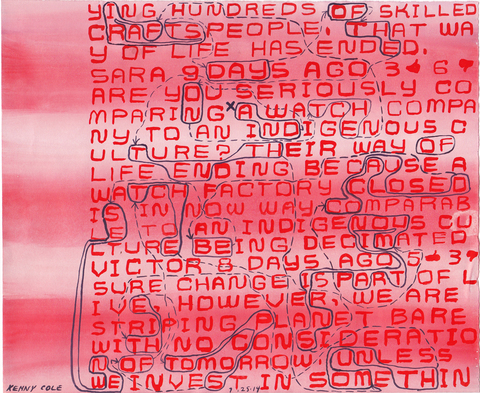 YING HUNDREDS OF SKILLED
CRAFTSPEOPLE. THAT WA
Y OF LIFE HAS ENDED.
SARA 9 DAYS AGO 3 6
ARE YOU SERIOUSLY CO
MPARING A WATCH COMPA
NY TO AN INDIGENOUS C
ULTURE? THEIR WAY OF
LIFE ENDING BECAUSE A
WATCH FACTORY CLOSED
IS IN NOW WAY COMPARAB
LE TO AN INDIGENOUS CO
LTURE BEING DECIMATED.
VICTOR 8 DAYS AGO 5 3
SURE CHANGE IS PART OF L
IVE. HOWEVER, WE ARE
STRIPING PLANET BARE
WITH NO CONSIDERATIO
N OF TOMORROW, UNLESS
WE INVEST IN SOMETHIN
KENNY COLE